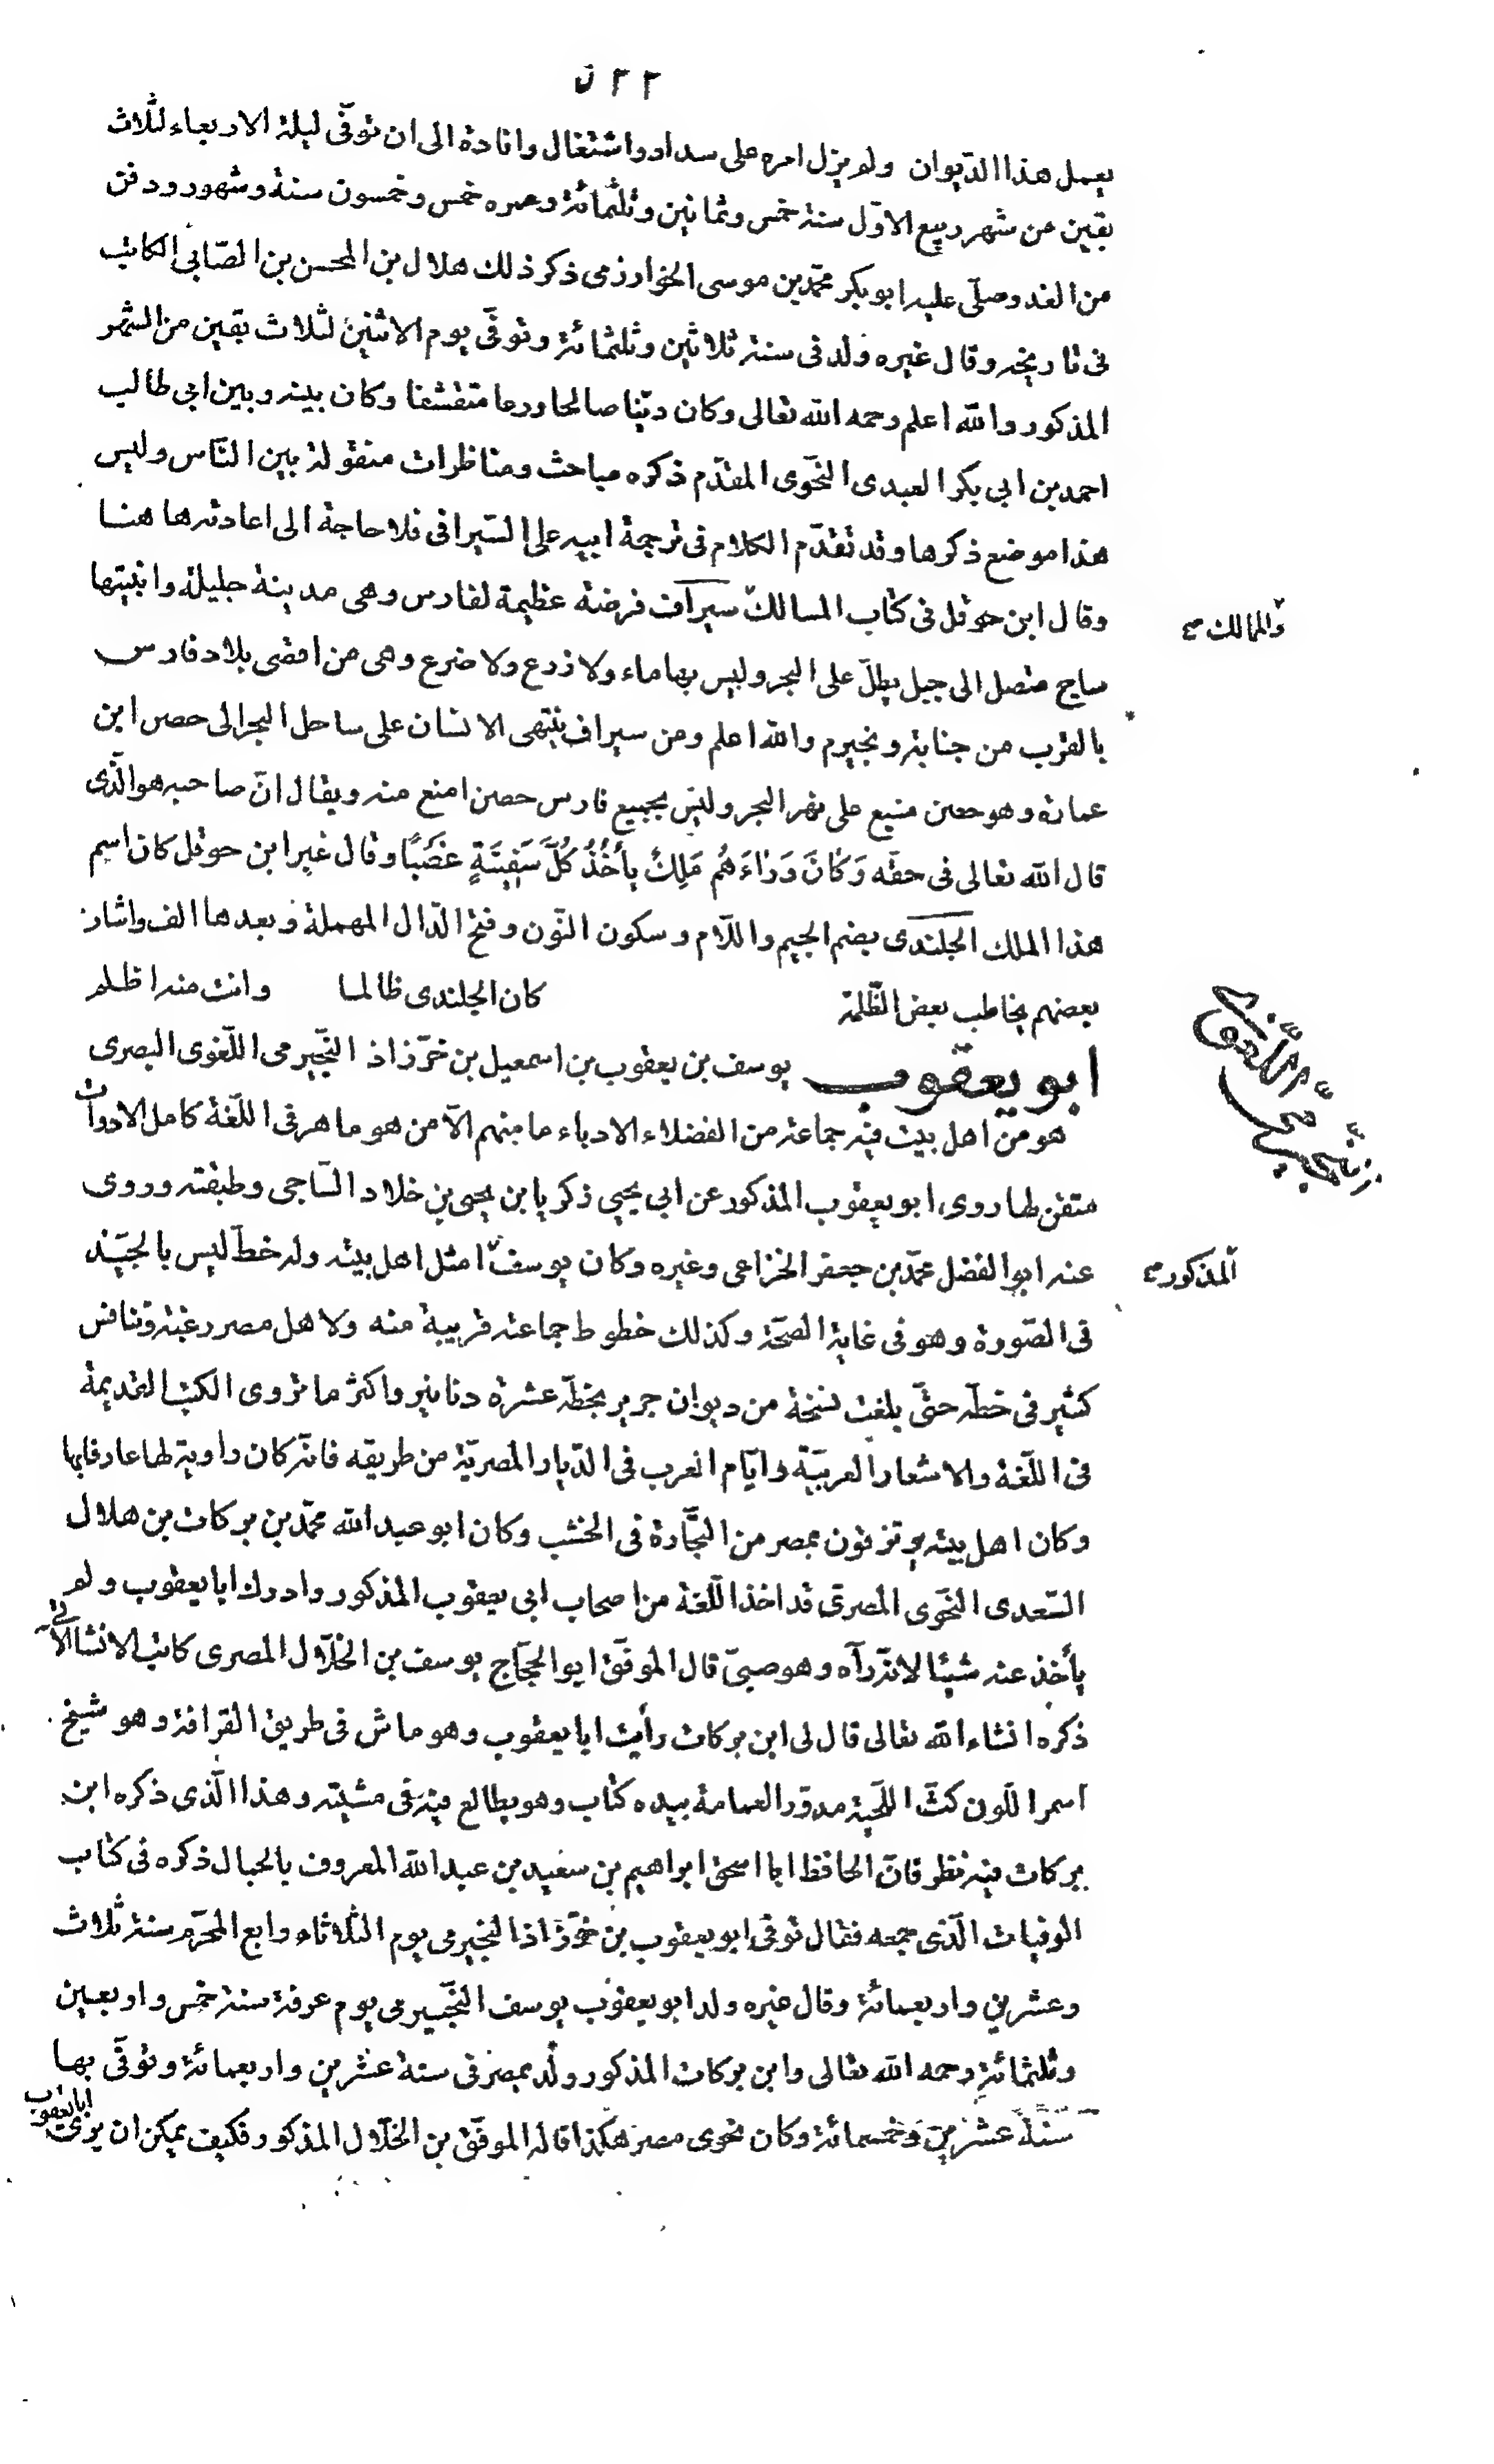 ٥٢٢
يعمل هذا الدّيوان ولم يزل امره على سداد واشتغال وافادة الى ان توفّى ليلة الاربعاء لثلاث
بقين من شهر ربيع الاوّل سنة خمس وثمانين وثلثمائة وعمره خمس وخمسون سنة وشهور ودفن
من الغد وصلّى عليه ابو بكر محمّد بن موسى الخوارزمى ذكر ذلك هلال بن المحسن بن الصّابى الكاتب
فى تاريخه وقال غيره ولد فى سنة ثلاثين وثلثمائة وتوفّى يوم الاثنين لثلاث بقين من الشهر
المذكور والله اعلم رحمه الله تعالى وكان ديّنا صالحا ورعا متقشفا وكان بينه وبين ابى طالب
احمد بن ابى بكر العبدى النحوى المقدّم ذكره مباحث ومناظرات منقولة بين النّاس وليس
هذا موضع ذكرها وقد تقدّم الكلام فى ترجمة ابيه على السّيرافى فلا حاجة الى اعادتها هنا
وقال ابن حوقل فى كتاب المسالك سيراف فرضة عظيمة لفارس وهى مدينة جليلة وابنيتها
والممالك صح
ساج متصل الى جبل يطلّ على البحر وليس بها ماء ولا زرع ولا ضرع وهى من اغنى بلاد فارس
بالقرب من جنابة ونجيرم والله اعلم ومن سيراف ينتهى الانسان على ساحل البحر الى حصن ابن
عمارة وهو حصن منيع على نهر البحر وليس بجميع فارس حصن امنع منه ويقال انّ صاحبه هو الّذى
قال الله تعالى فى حقّه وَكَانَ وَرَاءَهُم مَلِكٌ يَأْخُذُ كُلَّ سَفِينَةٍ غَصْبًا وقال غير ابن حوقل كان اسم
هذا الملك الجلندى بضم الجيم واللّام وسكون النّون وفتح الدّال المهملة وبعدها الف واشار
بعضهم يخاطب بعض الظّلمة كان الجلندى ظالما وانت منه اظلم
ابو يعقوب يوسف بن يعقوب بن اسمعيل بن خرّزاذ النّجيرمى اللّغوى البصرى
هو من اهل بيت فيه جماعة من الفضلاء الادباء ما منهم الّا من هو ماهر فى اللّغة كامل الادوات
متقن لها روى ابو يعقوب المذكور عن ابى يحيى زكريا بن يحيى بن خلاد السّاجى وطبقته وروى
عنه ابو الفضل محمّد بن جعفر الخزاعى وغيره وكان يوسف امثل اهل بيته وله خطّ ليس بالجيّد
المذكور صح
فى الصّورة وهو فى غاية الصحّة وكذلك خطوط جماعته قريبة منه ولاهل مصر رغبة وتنافس
كثير فى خطّه حتّى بلغت نسخة من ديوان جرير بخطّه عشرة دنانير واكثر ما تروى الكتب القديمة
فى اللّغة والاشعار العربيّة وايّام العرب فى الدّيار المصريّة من طريقه فانّه كان راوية لها عارفا بها
وكان اهل بيته يرتزقون بمصر من التّجارة فى الخشب وكان ابو عبد الله محمّد بن بركات بن هلال
السّعدى النحوى المصرى قد اخذ اللّغة من اصحاب ابى يعقوب المذكور وادرك ابا يعقوب ولم
يأخذ عنه شيئا لانّه رآه وهو صبىّ قال الموفّق ابو الحجّاج يوسف بن الخلّال المصرى كاتب الانشا الآتى
ذكره انشاء الله تعالى قال لى ابن بركات رأيت ابا يعقوب وهو ماش فى طريق القرافة وهو شيخ
اسمر اللّون كثّ اللّحية مدوّر العمامة بيده كتاب وهو يطالع فيه فى مشيته وهذا الّذى ذكره ابن
بركات فيه نظر فانّ الحافظ ابا اسحق ابراهيم بن سعيد بن عبد الله المعروف بالحبال ذكره فى كتاب
الوفيات الّذى جمعه فقال توفّى ابو يعقوب بن خرّزاذ النجيرمى يوم الثلاثاء رابع المحرّم سنة ثلاث
وعشرين واربعمائة وقال غيره ولد ابو يعقوب يوسف النجّيرمى يوم عرفة سنة خمس واربعين
وثلثمائة رحمه الله تعالى وابن بركات المذكور ولد بمصر فى سنة عشرين واربعمائة وتوفّى بها
سنة عشرين وخمسمائة وكان نحوى مصر هكذا قاله الموفّق بن الخلّال المذكور فكيف يمكن ان يرى ابا يعقوب